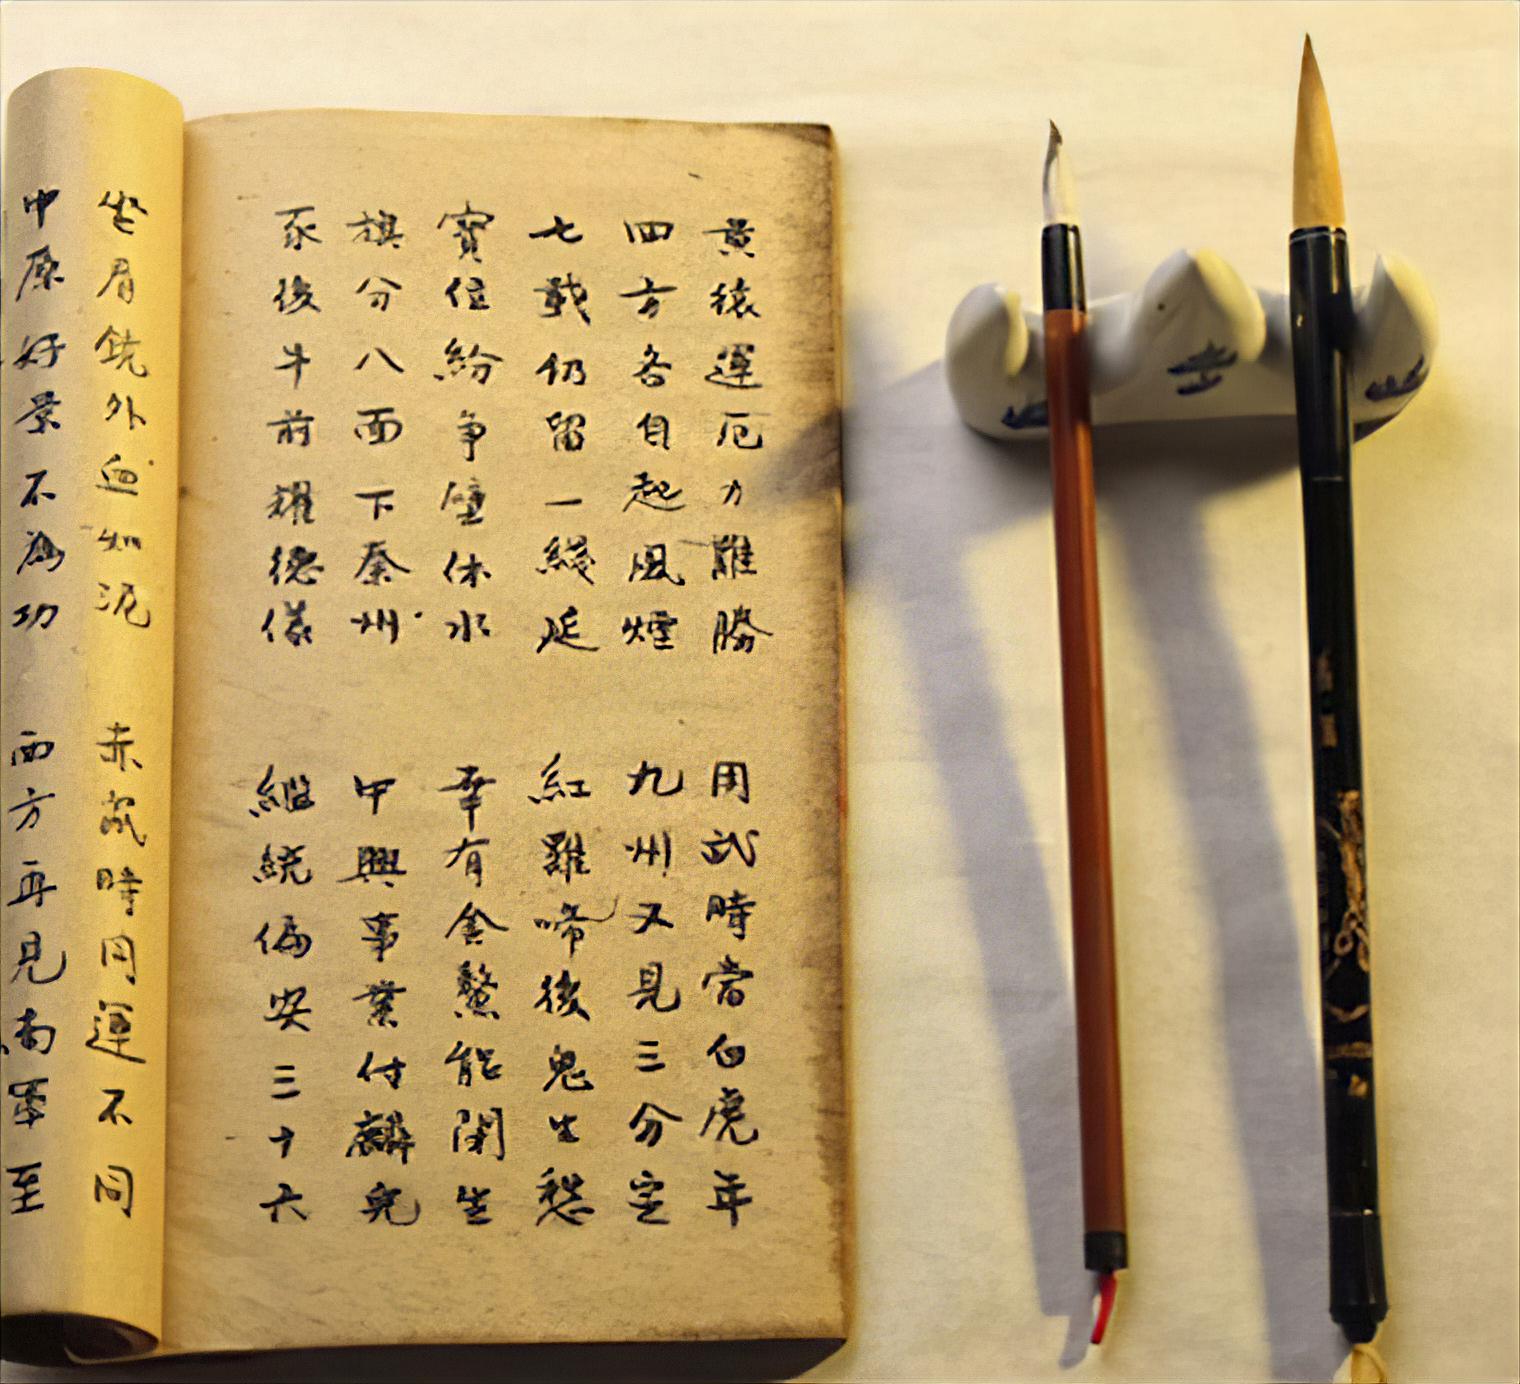 黃猿運厄力難勝 用武時當白虎年
四方各自起風煙 九州又見三分定
七載仍留一綫延 紅雞啼後鬼生愁
寶位紛争壁休水 幸有金鰲能閑生
旗分八面下秦州 中興事業付麟兒
豕後牛前耀德儀 繼統偏安三十六
坐看銃外血如泥 赤鼠時同運不同
中原好景不為功 西方再見南軍至